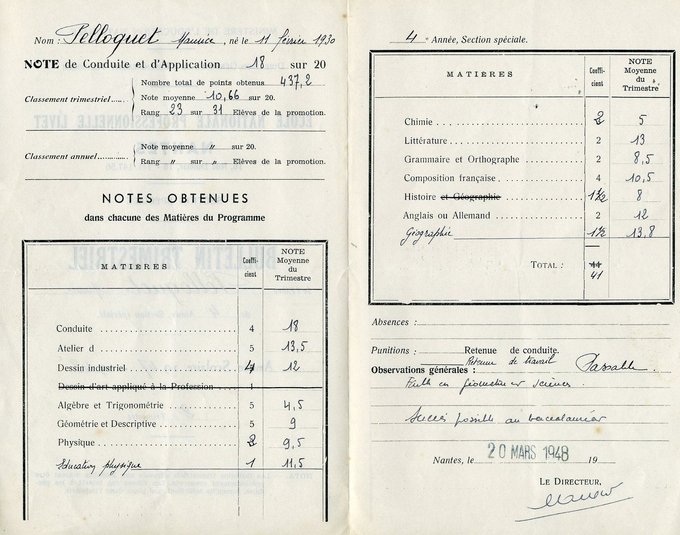 Nom : Pelloquet Maurice, né le 11 février 1930
NOTE de Conduite et d'Application 18 sur 20
Classement trimestriel.....
Nombre total de points obtenus 437,2
Note moyenne 10,66 sur 20.
Rang 23 sur 31 Elèves de la promotion.
Classement annuel.....
Note moyenne " sur 20.
Rang " sur " Elèves de la promotion.
NOTES OBTENUES
dans chacune des Matières du Programme
MATIÈRES Coeffi-cient NOTE Moyenne du Trimestre
Conduite 4 18
Atelier d 5 13,5
Dessin industriel 4 12
Dessin d'art appliqué à la Profession 1
Algèbre et Trigonométrie 5 4,5
Géométrie et Descriptive 5 9
Physique 2 9,5
Education physique 1 11,5
4e Année, Section spéciale.
MATIÈRES Coeffi-cient NOTE Moyenne du Trimestre
Chimie 2 5
Littérature 2 13
Grammaire et Orthographe 2 8,5
Composition française 4 10,5
Histoire et Géographie 1½ 8
Anglais ou Allemand 2 12
Géographie 1½ 13,8
TOTAL : 41
Absences :
Punitions : Retenue de conduite.
Retenue de travail
Observations générales : Passable
Faible en géométrie et sciences
Succès possible au baccalauréat
Nantes, le 20 MARS 1948 19
LE DIRECTEUR,